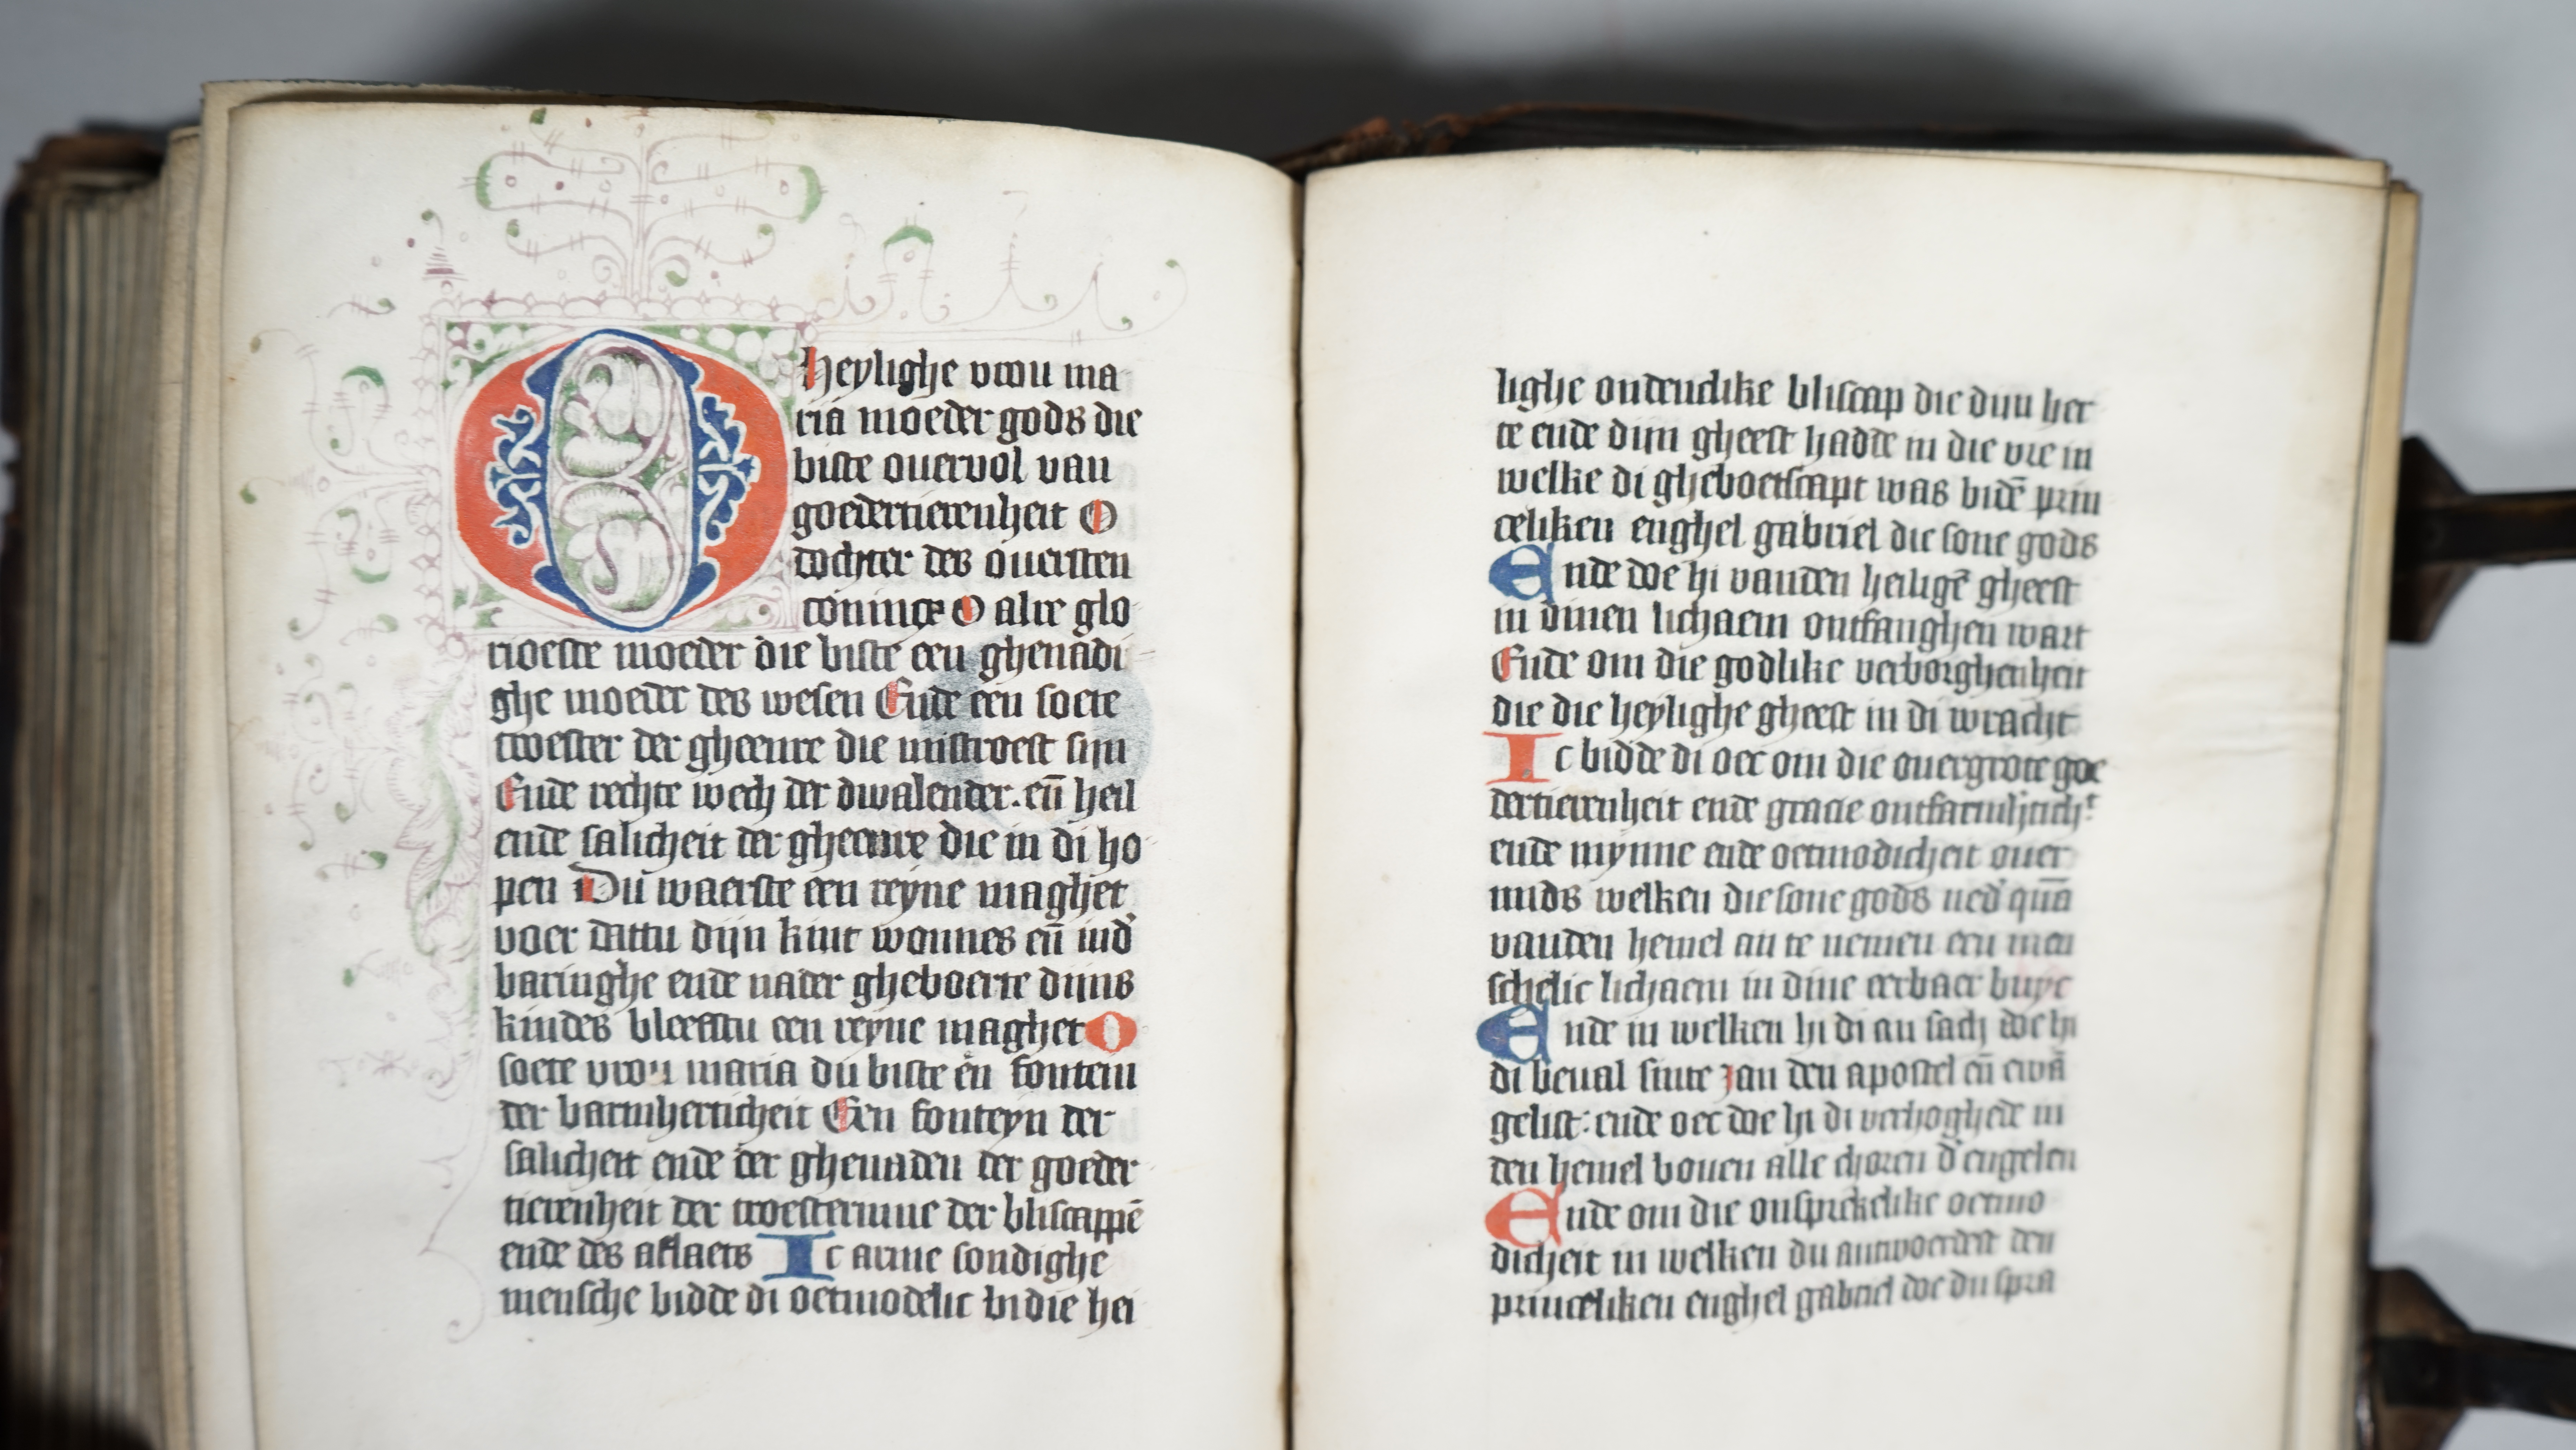 O heylighe vrou ma
ria moeder gods die
biste ouervol van
goedertierenheit O
dochter des ouersten
conincx O alre glo
rioeste moeder die biste een ghenadi
ghe moeder des wesen Ende een soete
troester der gheenre die mistroest sijn
Ende rechte wech der dwalender. eñ heil
ende salicheit der gheenre die in di ho
pen Du waerste een reyne maghet
voer dattu dijn kint wonnes eñ ind'
baringhe ende nader gheboerte dijns
kindes bleefstu een reyne maghet O
soete vrou maria du biste een fonteiu
der barmherticheit Een fonteyn der
salicheit ende der ghenaden der goeder
tierenheit der troesterinne der bliscappē
ende des aflaets Ic arme sondighe
mensche bidde di oetmodelic bi die hei
lighe ontendlike bliscap die dijn her
te ende dijn gheest hadde in die vre in
welke di gheboetscapt was bidē prin
celiken enghel gabriel die sone gods
Ende doe hi vanden heiligē gheest
in dinen lichaem ontfanghen wart
Ende om die godlike verborghenheit
die die heylighe gheest in di wracht
Ic bidde di oec om die ouergrote goe
dertierenheit ende gracie ontfarmh'tich't
ende mynne ende oetmodicheit ouer
mids welken die sone gods ned' quā
vanden hemel an te nemen een men
schelic lichaem in dine eerbaer buyc
Ende in welken hi di an sach doe hi
di beual sinte jan den apostel eñ ewā
gelist: ende oec doe hi di verhoghede in
den hemel bouen alle choren d' engelen
Ende om die onsprekelike oetmo
dicheit in welken du antwoerdest den
princeliken enghel gabriel doe du spra